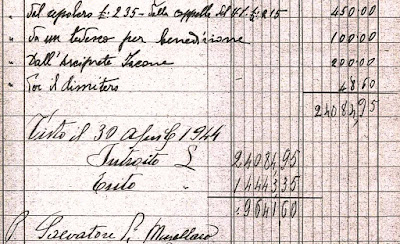 Dal sepolcro £: 235 - Dalla cappella del SS. £: 215 450.00
" Da un tedesco per benedizione 100.00
" Dall'Arciprete Iacone 200.00
" Per il cimitero 48.60
24084,95
Visto il 30 Aprile 1944
Introito £ 24084,95
Esito " 14443,35
9641,60
P. Salvatore Di